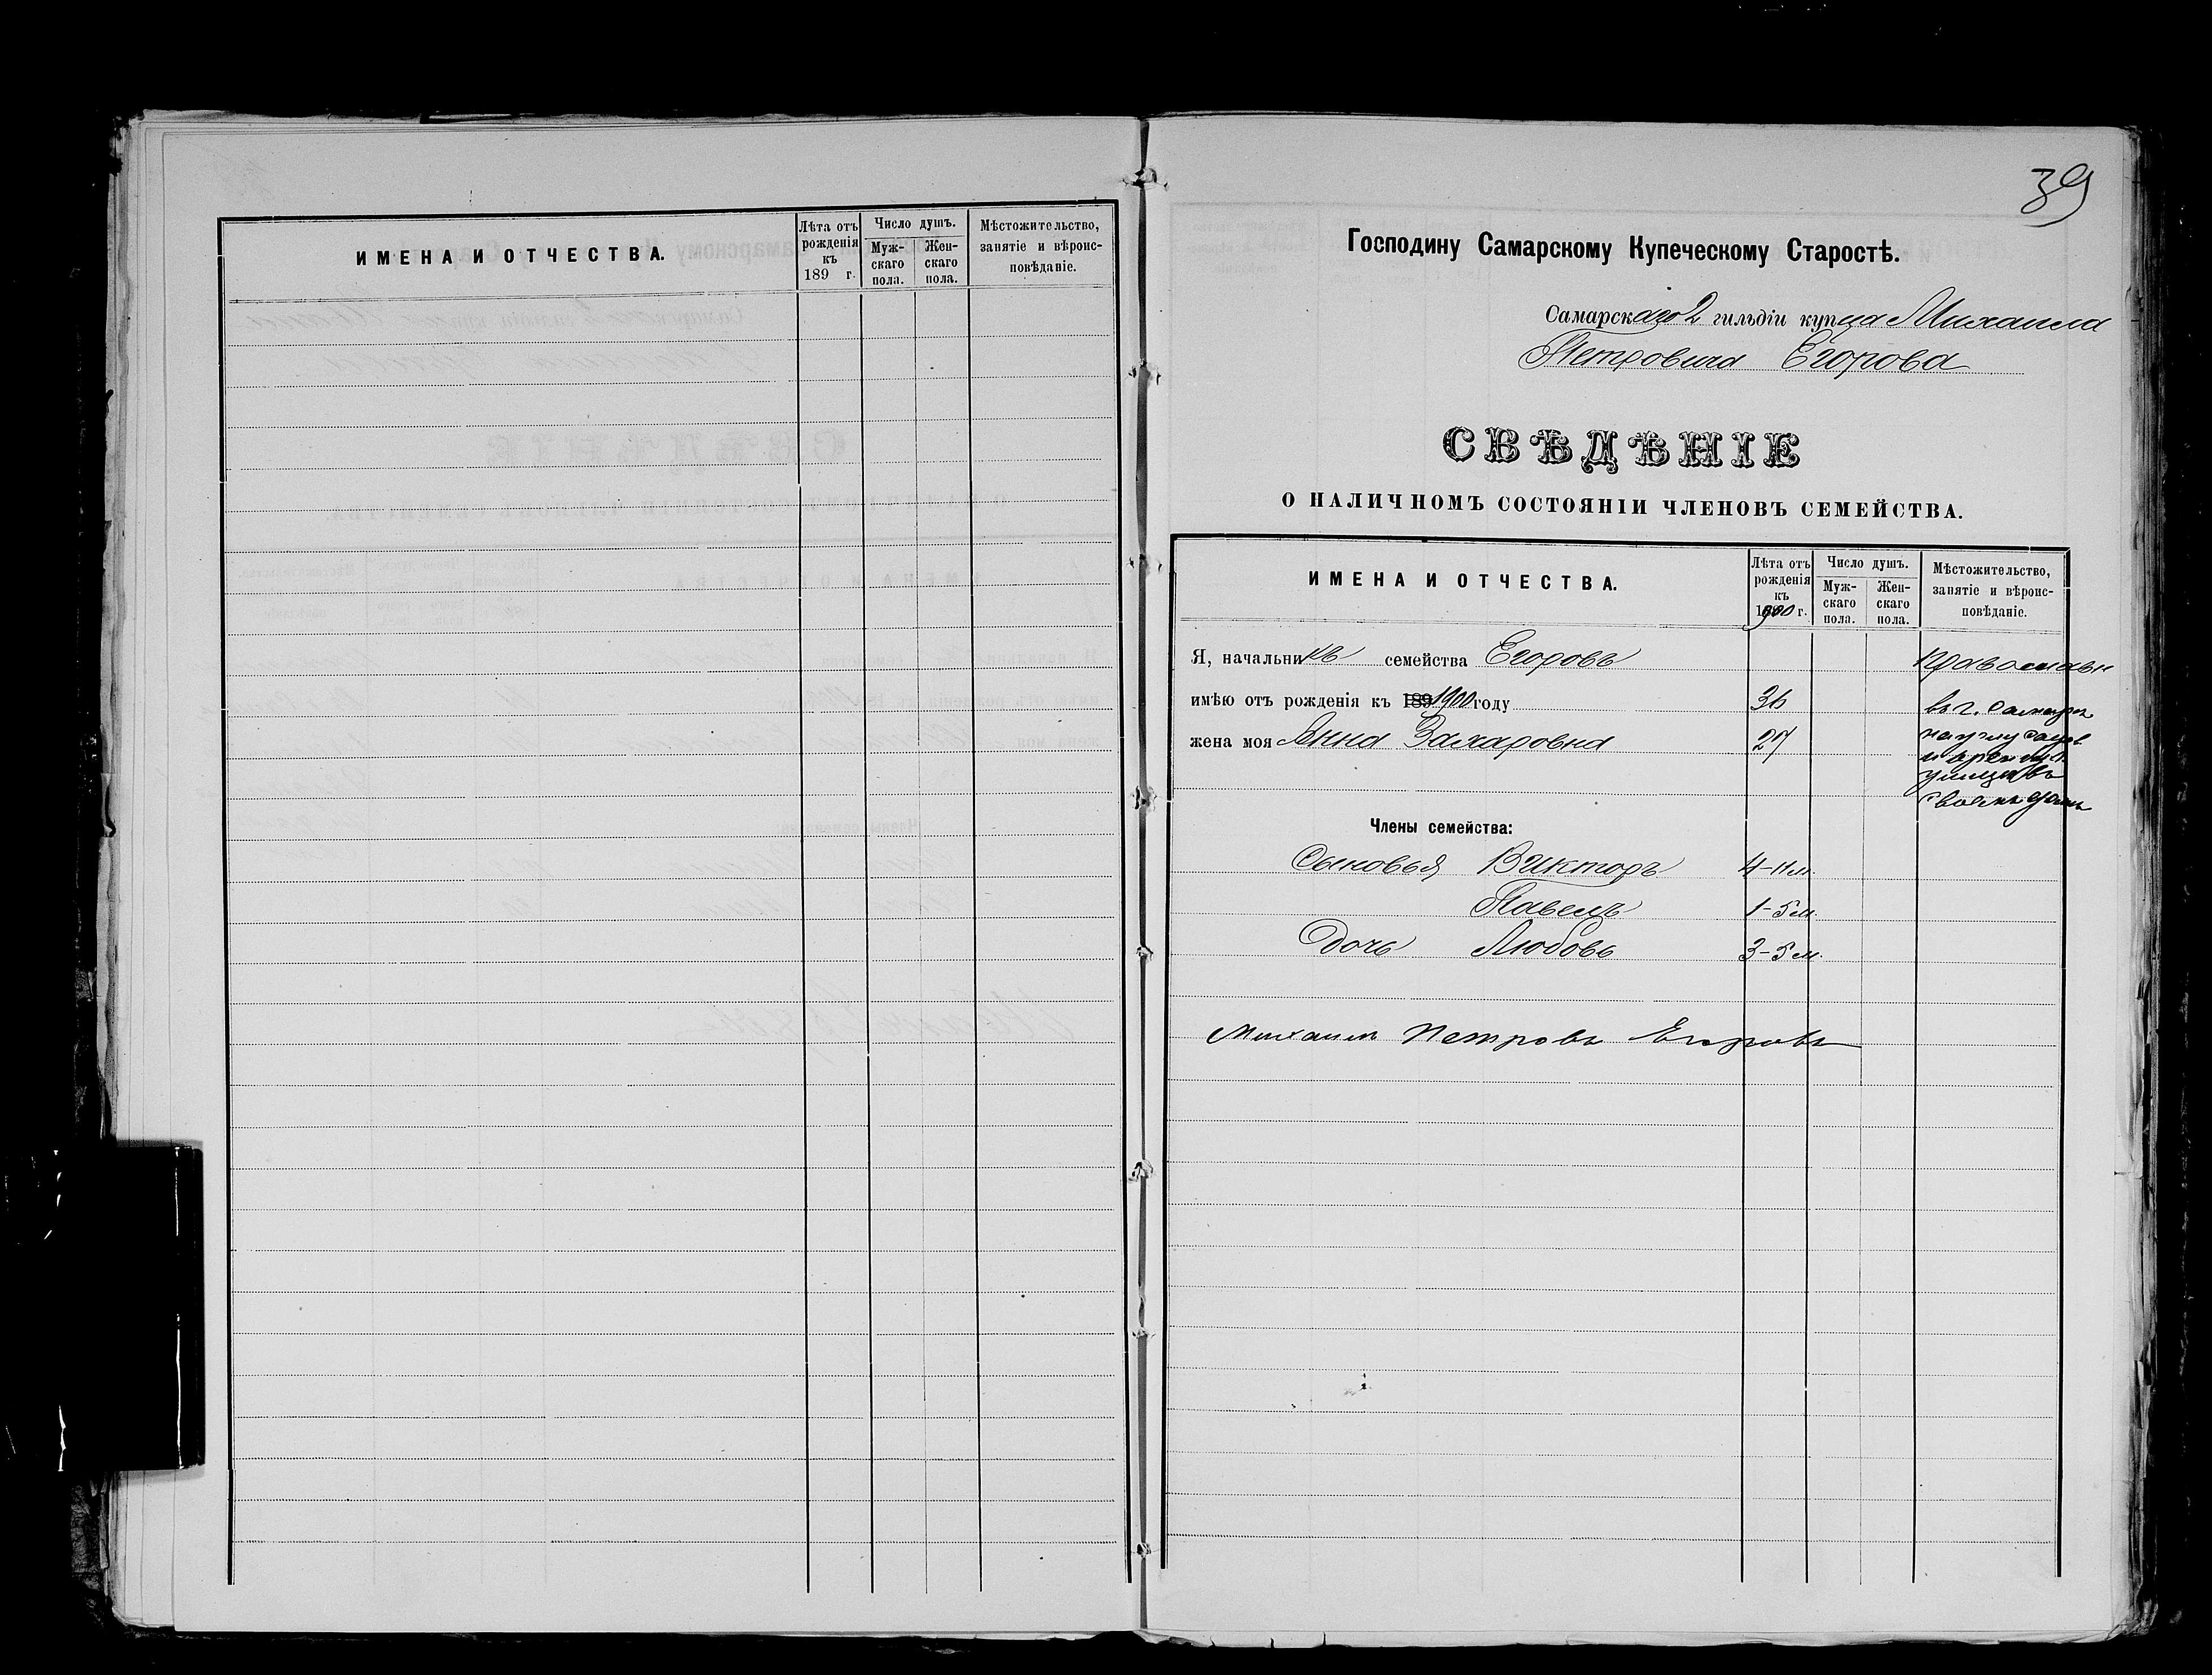 ИМЕНА И ОТЧЕСТВА.
Лѣта отъ рожденія къ 189 г.
Число душъ.
Муж- скаго пола.
Жен- скаго пола.
Мѣстожительство, занятіе и вѣроис- повѣданіе.
39
Господину Самарскому Купеческому Старостѣ.
Самарскаго 2 гильдіи купца Михаила
Петровича Егорова
СВѢДѢНІЕ
О НАЛИЧНОМЪ СОСТОЯНІИ ЧЛЕНОВЪ СЕМЕЙСТВА.
ИМЕНА И ОТЧЕСТВА.
Лѣта отъ рожденія къ 1900 г.
Число душъ.
Муж- скаго пола.
Жен- скаго пола.
Мѣстожительство, занятіе и вѣроис- повѣданіе.
Я, начальникъ семейства Егоровъ Православн
имѣю отъ рожденія къ 189 1900 году 36 въ г. Самарѣ
жена моя Анна Захаровна 27 на углу
улицъ въ
своемъ домѣ
Члены семейства:
Сыновья Викторъ 4-11 м.
Павелъ 1-5 м.
Дочь Любовь 3-5 м.
Михаилъ Петровъ Егоровъ